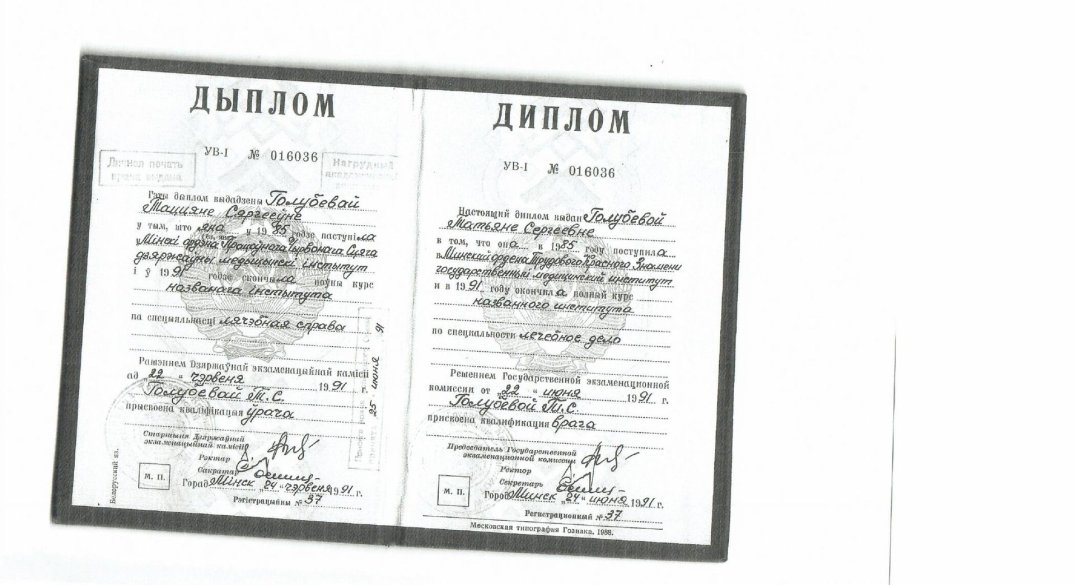 ДЫПЛОМ
УВ-I № 016036
Личная печать
врача выдана
Нагрудный
академический
Гэты дыплом выдадзены Голубевай
Таццяне Сяргееўне
у тым, што яна у 1985 годзе паступіла
у Мінскі ордэна Працоўнага Чырвонага Сцяга
дзяржаўны медыцынскі інстытут
і ў 1991 годзе скончыла поўны курс
названага інстытута
па спецыяльнасці лячэбная справа
Рашэннем Дзяржаўнай экзаменацыйнай камісіі
ад „22 “ чэрвеня 1991 г.
Голубевай Т.С.
прысвоена кваліфікацыя ўрача
Старшыня Дзяржаўнай
экзаменацыйнай камісіі
Рэктар
Сакратар
М. П.
Горад Мінск „24 “ чэрвеня 1991 г.
Рэгістрацыйны № 37
Белорусский яз.
25 июня 91
ДИПЛОМ
УВ-I № 016036
Настоящий диплом выдан Голубевой
Татьяне Сергеевне
в том, что она в 1985 году поступила
в Минский ордена Трудового Красного Знамени
государственный медицинский институт
и в 1991 году окончила полный курс
названного института
по специальности лечебное дело
Решением Государственной экзаменационной
комиссии от „22 “ июня 1991 г.
Голубевой Т.С.
присвоена квалификация врача
Председатель Государственной
экзаменационной комиссии
Ректор
Секретарь
М. П.
Город Минск „24 “ июня 1991 г.
Регистрационный № 37
Московская типография Гознака. 1988.